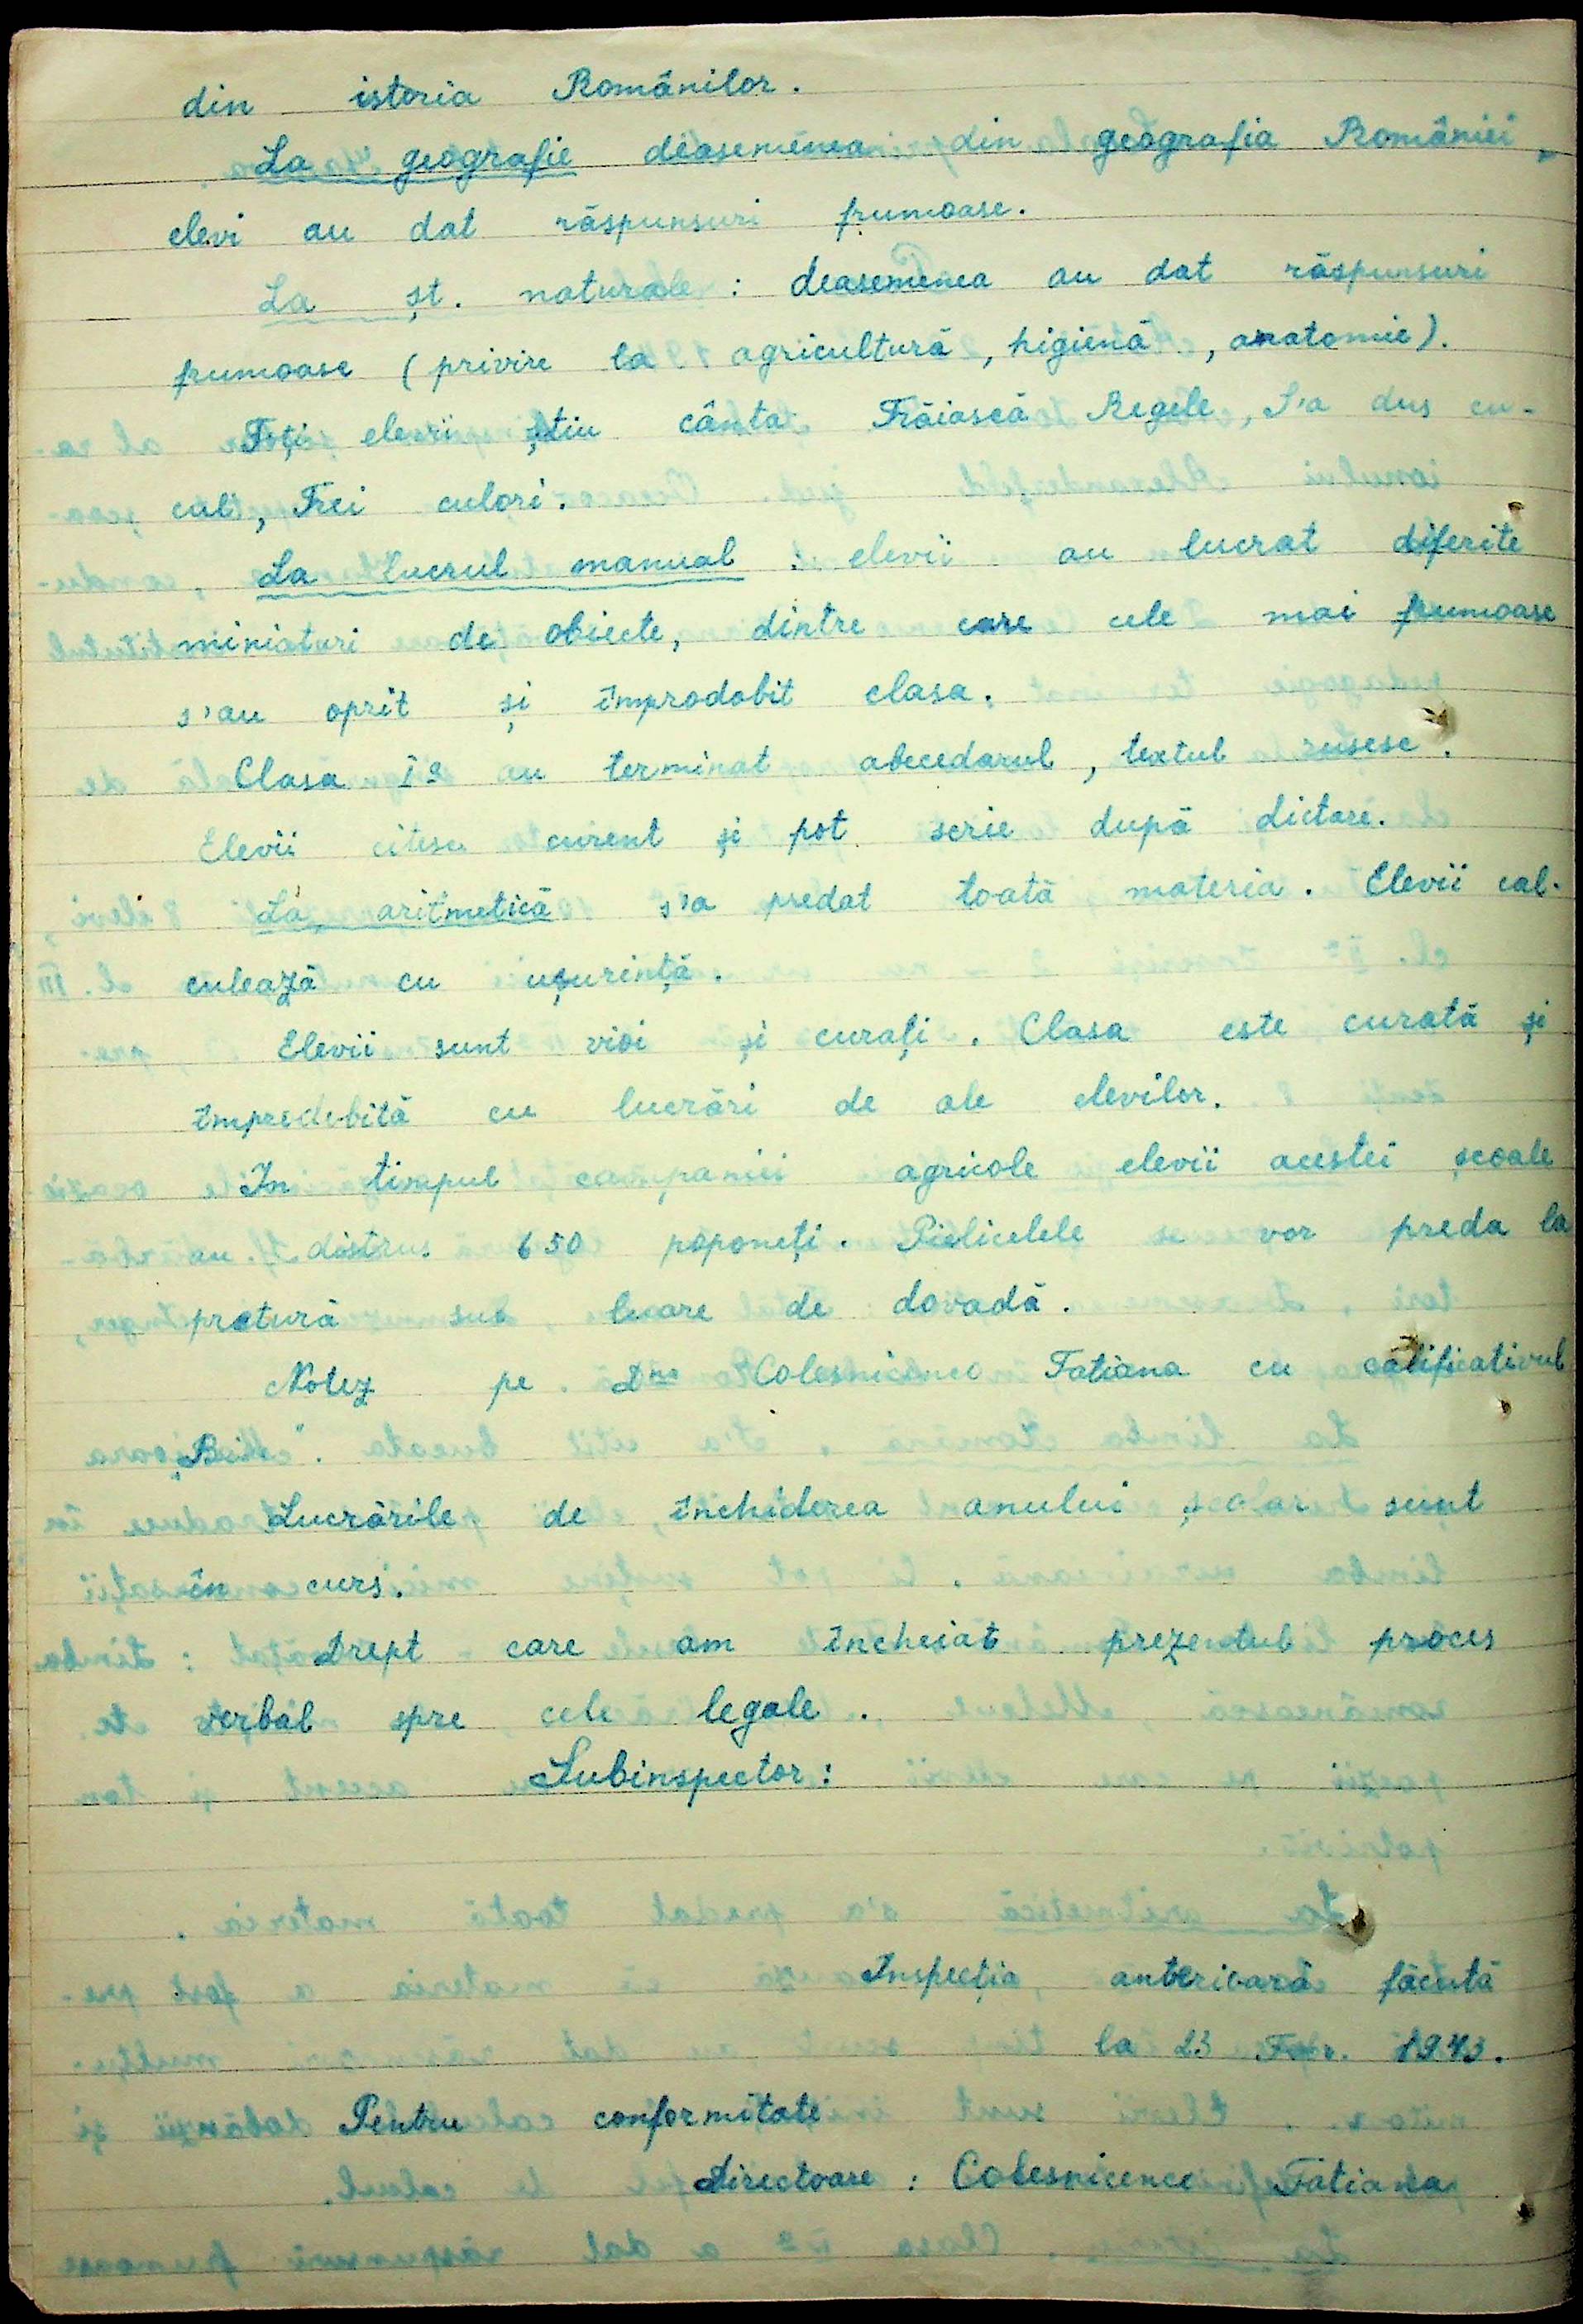 din istoria Românilor.
La geografie deasemenea din geografia României,
elevi au dat răspunsuri frumoase.
La șt. naturale : deasemenea au dat răspunsuri
frumoase (privire la agricultură, higienă, anatomie).
Toți elevii știu cânta Trăiască Regele, S'a dus cu-
cul, Trei culori.
La Lucrul manual : elevii au lucrat diferite
miniaturi de obiecte, dintre care cele mai frumoase
s'au oprit și împrodobit clasa.
Clasa I-a au terminat abecedarul, textul rusesc.
Elevii citesc curent și pot scrie după dictare.
La aritmetică s'a predat toată materia. Elevii cal-
culează cu ușurință.
Elevii sunt vioi și curați. Clasa este curată și
împredobită cu lucrări de ale elevilor.
In timpul campaniei agricole elevii acestei școale
au distrus 650 poponeți. Pielicelele se vor preda la
pretură sub luare de dovadă.
Notez pe Dna Colesnicenco Tatiana cu calificativul
„Bine"
Lucrările de închiderea anului școlar sunt
în curs.
Drept care am încheiat prezentul proces
verbal spre cele legale.
Subinspector:
Inspecția anterioară făcută
la 23 Febr. 1943.
Pentru conformitate
Directoare : Colesnicenco Tatiana